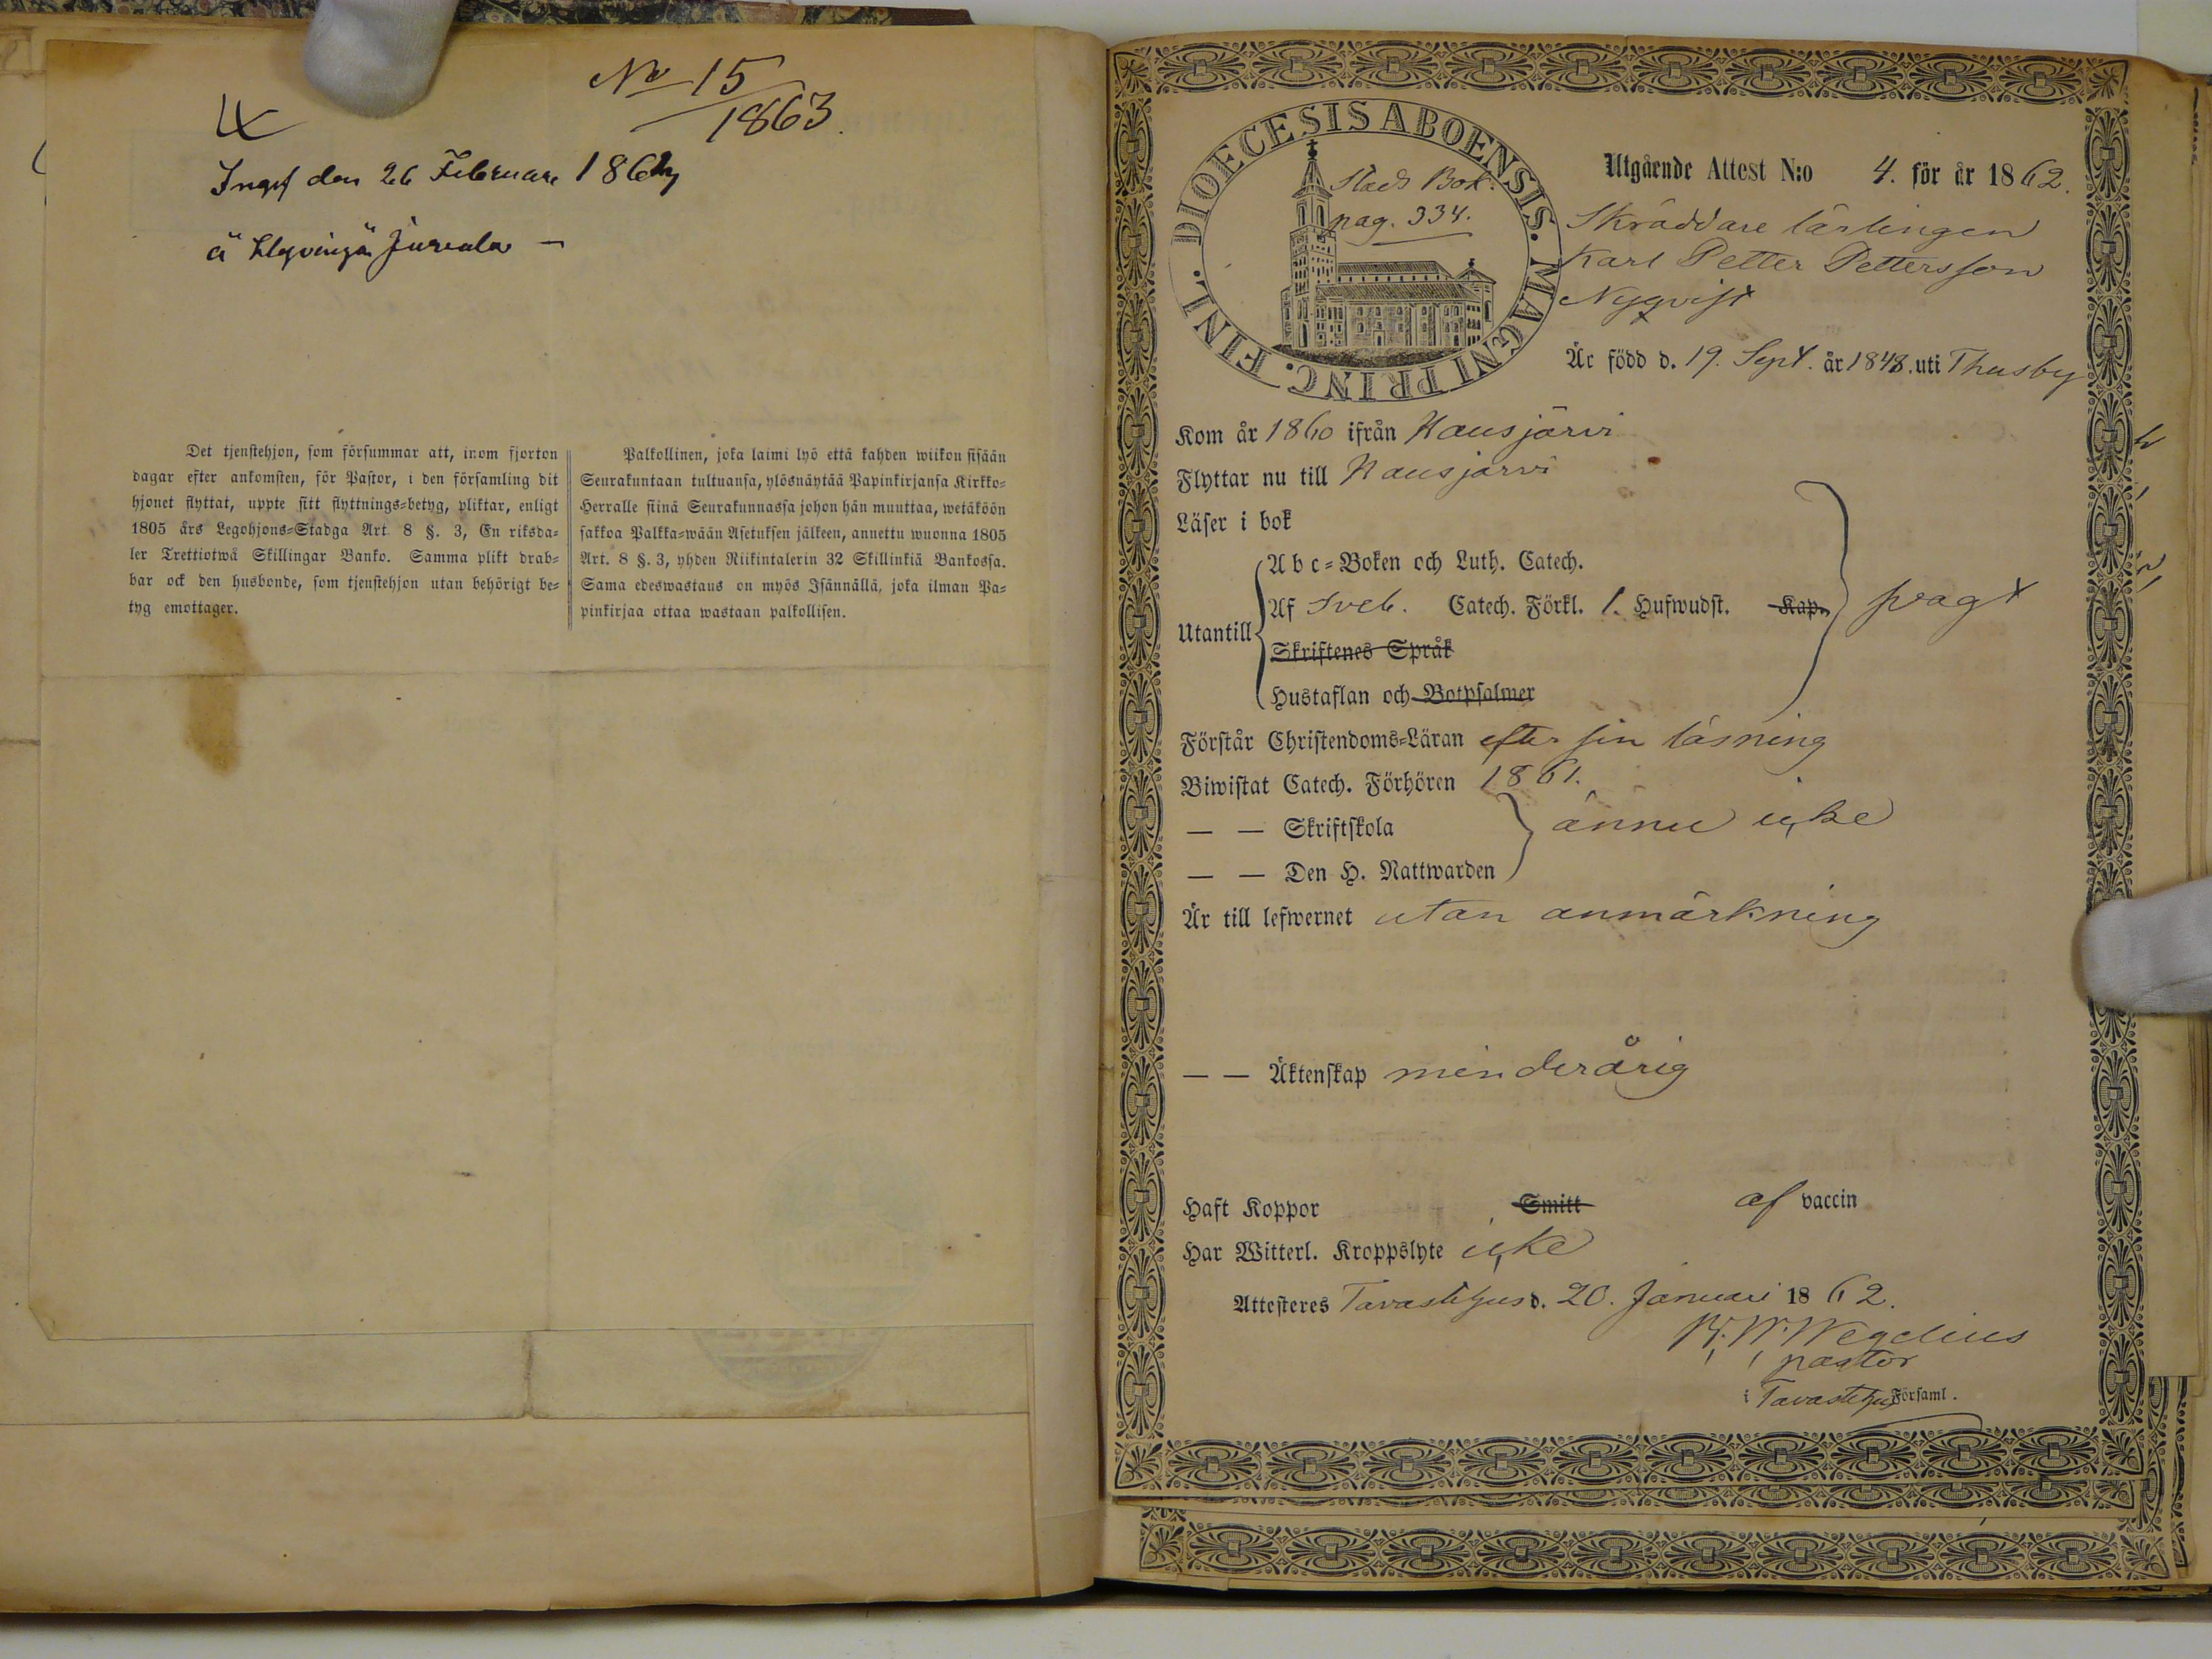 No 15
1863.
4
Ingf den 26 Februari 186
å Hyvingä Jureala —
Det tjenstehjon, som försummar att, inom fjorton
dagar efter ankomsten, för Pastor, i den församling dit
hjonet flyttat, uppte sitt flyttnings-betyg, pliktar, enligt
1805 års Legohjons-Stadga Art. 8 §. 3, En riksda-
ler Trettiotwå Skillingar Banko. Samma plikt drab-
bar ock den husbonde, som tjenstehjon utan behörigt be-
tyg emottager.
Palkollinen, joka laimi lyö että kahden wiikon sisään
Seurakuntaan tultuansa, ylösnäytää Papinkirjansa Kirkko-
Herralle siinä Seurakunnassa johon hän muuttaa, wetäköön
sakkoa Palkka-wään Asetuksen jälkeen, annettu wuonna 1805
Art. 8 §. 3, yhden Riikintalerin 32 Skillinkiä Bankossa.
Sama edeswastaus on myös Isännällä, joka ilman Pa-
pinkirjaa ottaa wastaan palkollisen.
DIOECESIS ABOENSIS. MAGNI PRINC. FINL.
Stads Bok.
pag. 334.
Utgående Attest N:o 4. för år 1862.
Skräddare lärlingen
Karl Petter Pettersson
Nyqvist
Är född d. 19. Sept. år 1848. uti Thusby
Kom år 1860 ifrån Hausjärvi
Flyttar nu till Hausjärvi
Läser i bok
Abc-Boken och Luth. Catech.
Utantill Af Sveb. Catech. Förkl. 1. Hufwudst. Kap. svagt
Skriftenes Språk
Hustaflan och Botpsalmer
Förstår Christendoms-Läran efter sin läsning
Biwistat Catech. Förhören 1861.
— — Skriftskola ännu icke
— — Den H. Nattwarden
Är till lefwernet utan anmärkning
— — Äktenskap minderårig
Haft Koppor Smitt af vaccin
Har Witterl. Kroppslyte icke
Attesteres Tavastehus d. 20. Januari 1862.
Wegelius
pastor
i Tavastehus Församl.